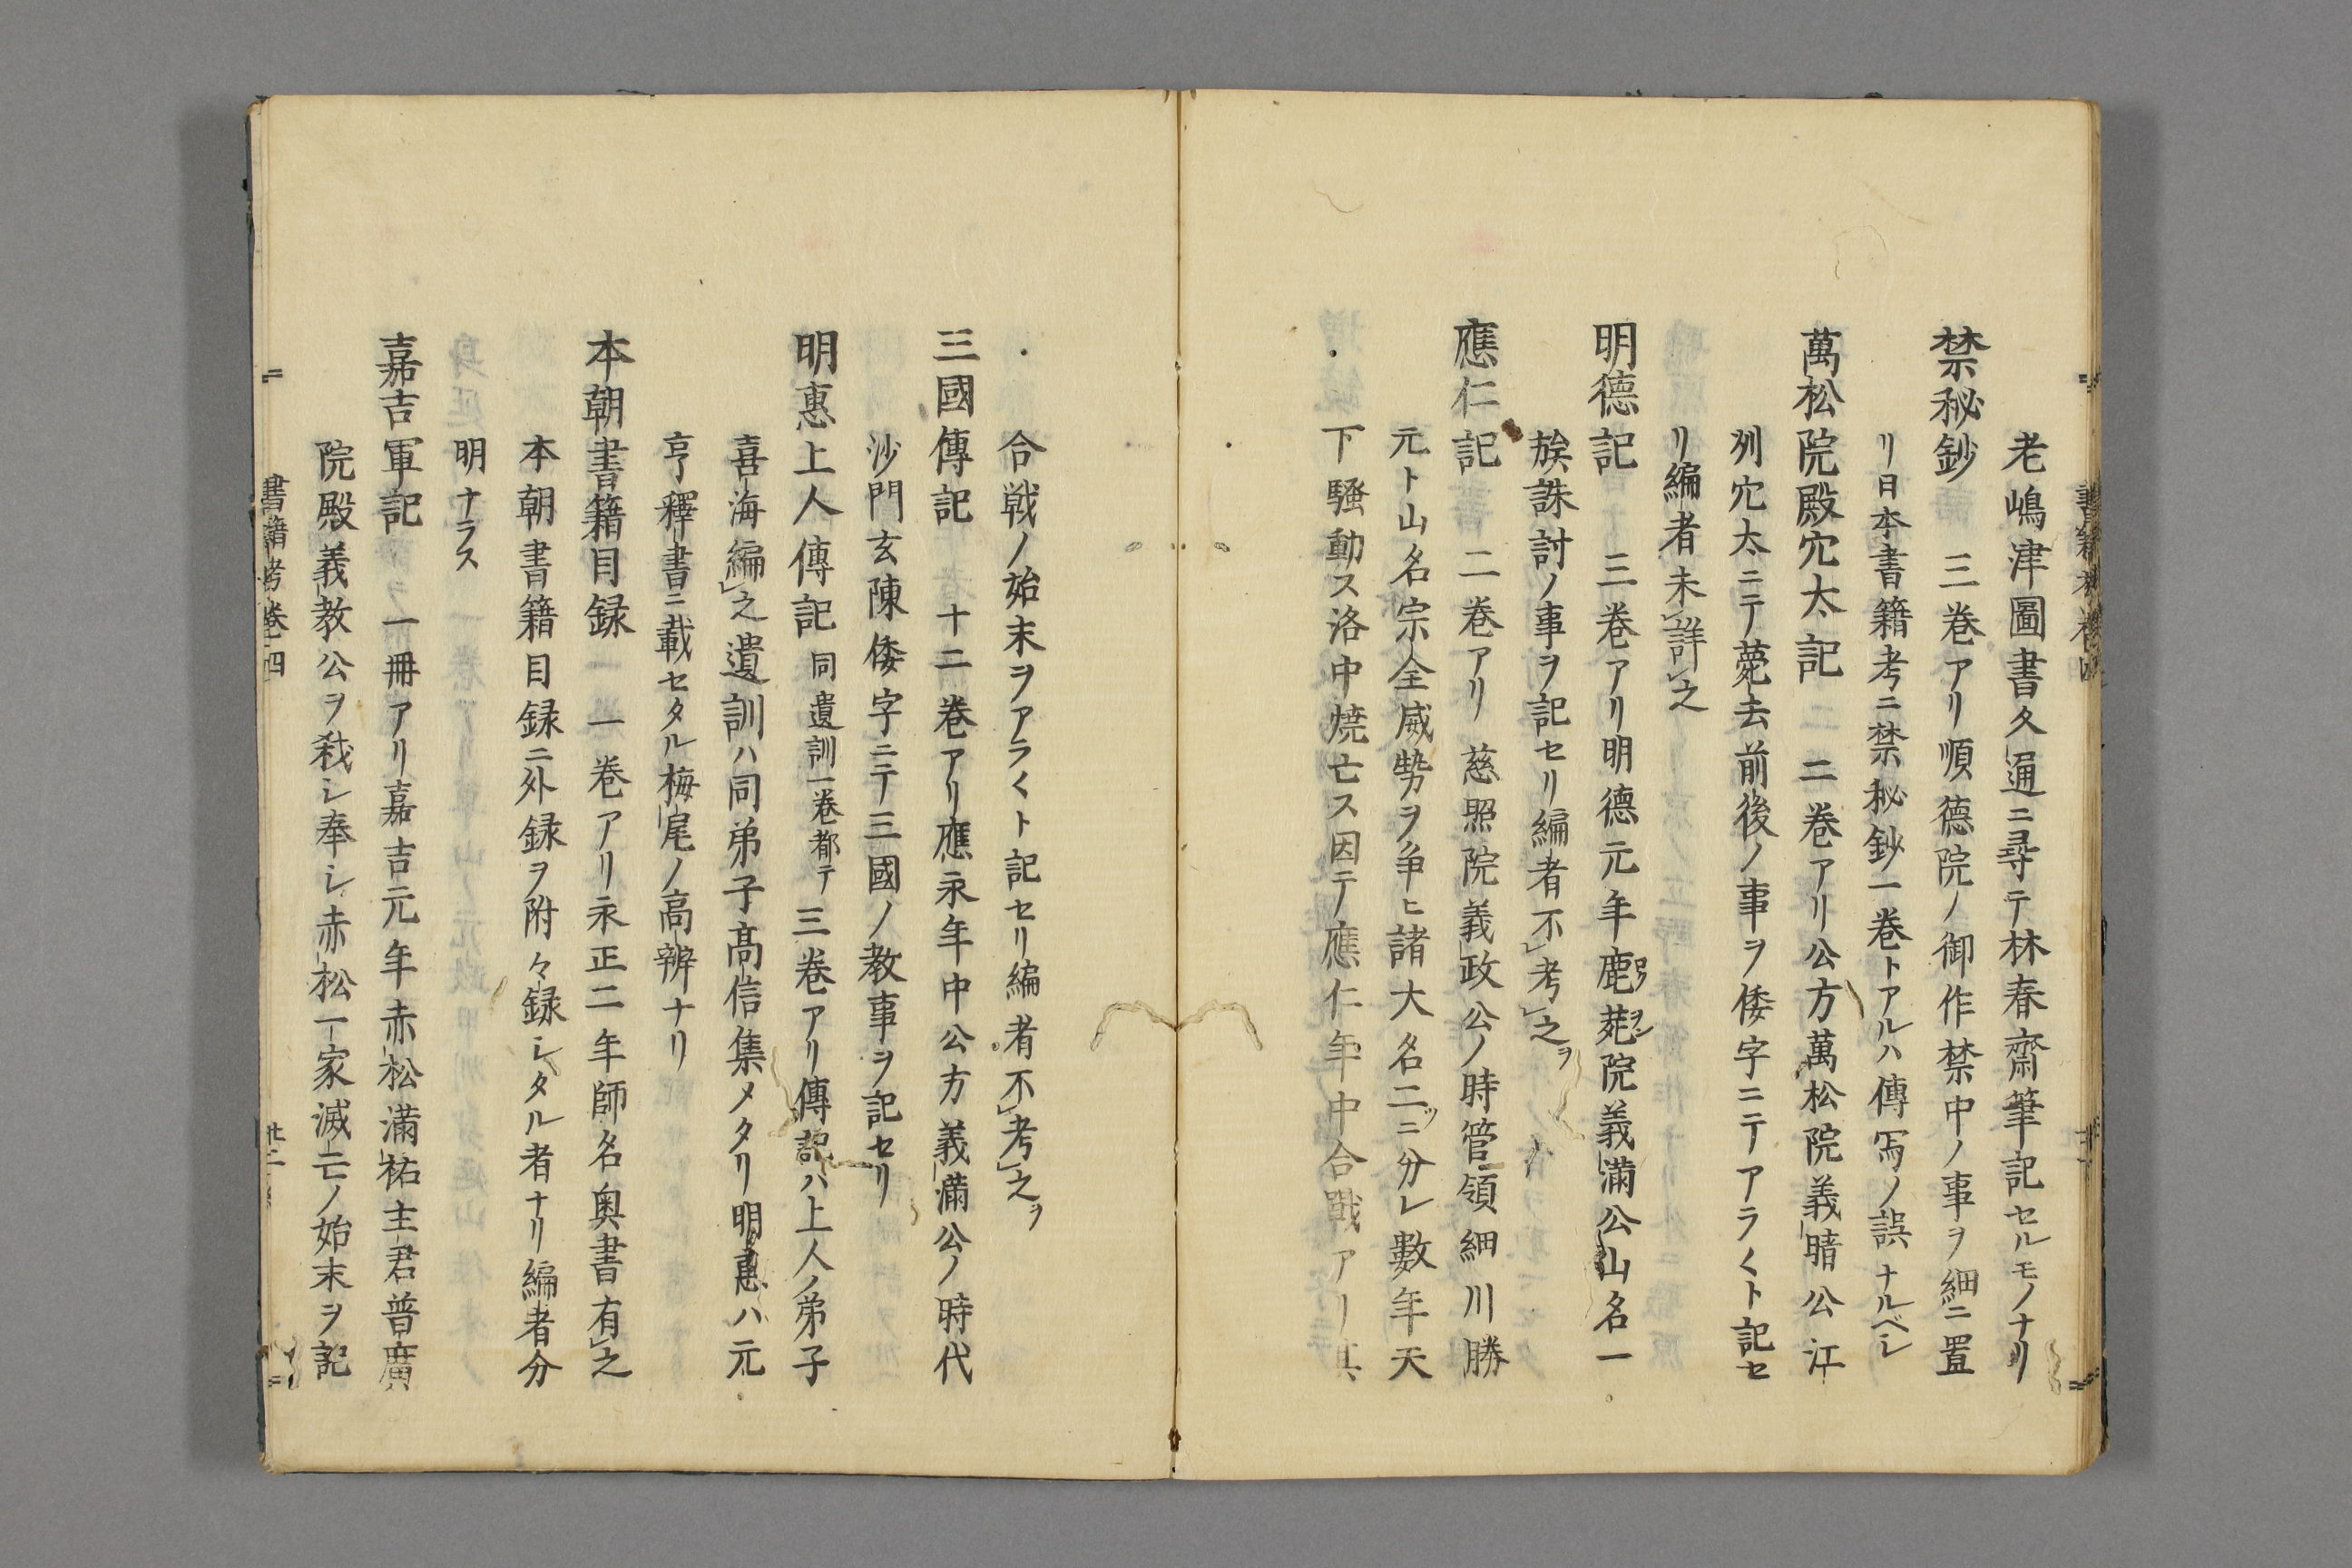 老嶋津圖書久通ニ尋テ林春齋筆記セルモノナリ
禁秘鈔　三巻アリ順德院ノ御作禁中ノ事ヲ細ニ置
リ日本書籍考ニ禁秘鈔一巻トアルハ傳写ノ誤ナルベシ
萬松院殿穴太記　二巻アリ公方萬松院義晴公江
列穴太ニテ薨去前後ノ事ヲ倭字ニテアラ〱ト記セ
リ編者未詳之
明德記　三巻アリ明德元年鹿苑院義滿公山名一
族誅討ノ事ヲ記セリ編者不考之ヲ
應仁記　二巻アリ慈照院義政公ノ時管領細川勝
元ト山名宗全威勢ヲ争ヒ諸大名二ツニ分レ數年天
下騒動ス洛中焼亡ス因テ應仁年中合戰アリ其
合戦ノ始末ヲアラ〱ト記セリ編者不考之ヲ
三國傳記　十二巻アリ應永年中公方義滿公ノ時代
沙門玄陳倭字ニテ三國ノ教事ヲ記セリ
明惠上人傳記同遺訓一巻都テ三巻アリ傳記ハ上人ノ弟子
喜海編之遺訓ハ同弟子高信集メタリ明惠ハ元
亨釋書ニ載セタル梅尾ノ高辨ナリ
本朝書籍目録　一巻アリ永正二年師名奥書有之
本朝書籍目録ニ外録ヲ附々録シタル者ナリ編者分
明ナラス
嘉吉軍記　一冊アリ嘉吉元年赤松滿祐主君普廣
院殿義教公ヲ殺シ奉シ赤松一家滅亡ノ始末ヲ記
書籍考巻四　廿二